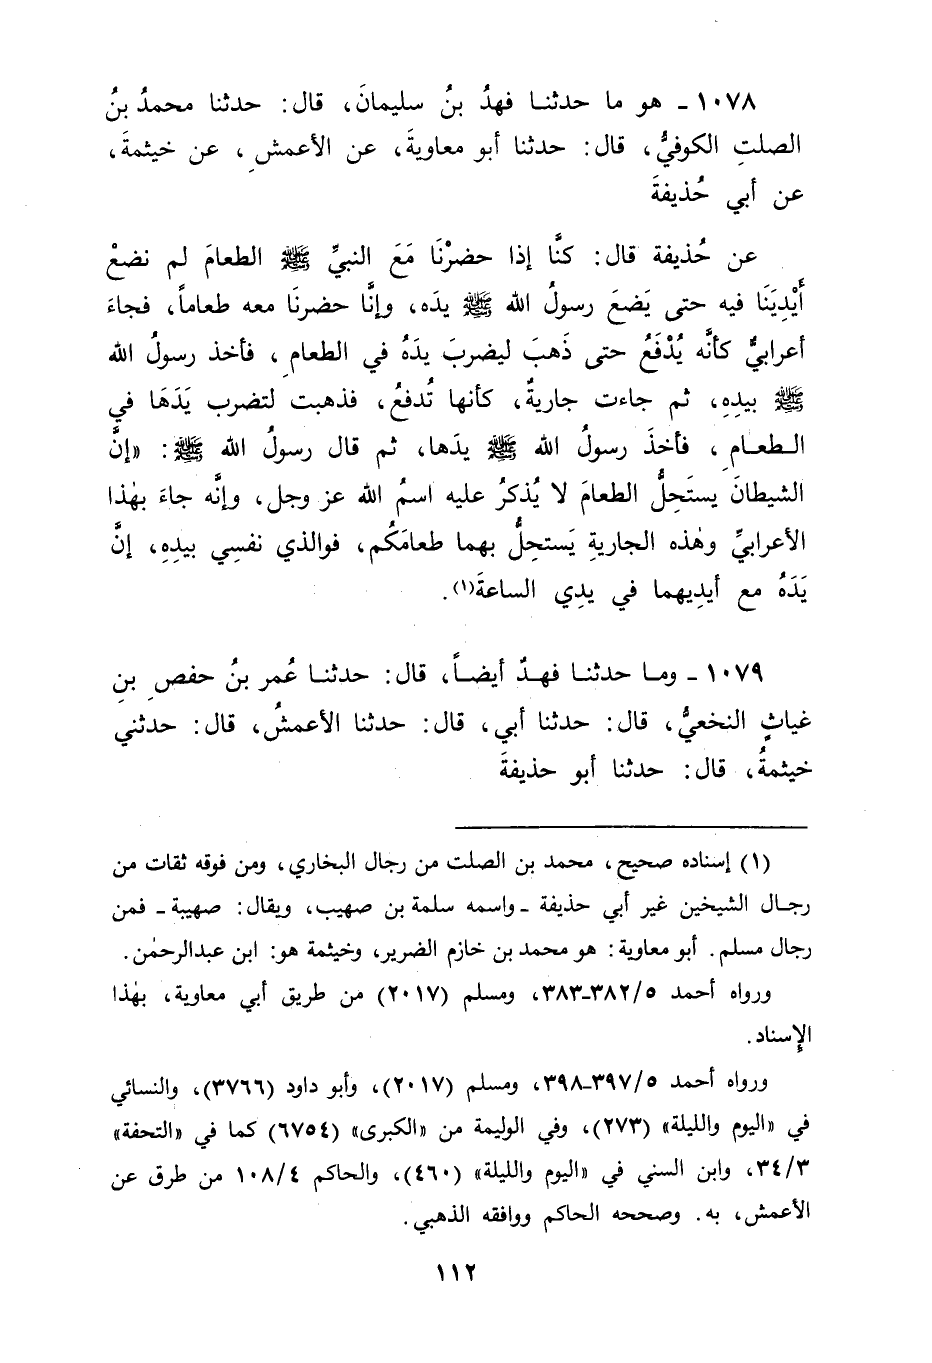 ١٠٧٨ ـ هو ما حدثنـا فهدُ بنُ سليمانَ، قال: حدثنا محمدُ بنُ
الصلتِ الكوفيُّ، قال: حدثنا أبو معاويةَ، عن الأعمشِ، عن خيثمةَ،
عن أبي حُذيفةَ
عن حُذيفة قال: كنَّا إذا حضرْنَا مَعَ النبيِّ ﷺ الطعامَ لم نضعْ
أَيْدِيَنَا فيه حتى يَضعَ رسولُ الله ﷺ يدَه، وإنَّا حضرنَا معه طعاماً، فجاءَ
أعرابيٌّ كأنَّه يُدْفَعُ حتى ذَهبَ ليضربَ يدَهُ في الطعامِ، فأخذ رسولُ الله
ﷺ بيدِهِ، ثم جاءت جاريةٌ، كأنها تُدفعُ، فذهبت لتضرب يَدَهَا في
الـطعـامِ، فأخذَ رسولُ الله ﷺ يدَها، ثم قال رسولُ الله ﷺ: «إنَّ
الشيطانَ يستَحِلُّ الطعامَ لا يُذكرُ عليه اسمُ الله عز وجل، وإنَّه جاءَ بهٰذا
الأعرابيِّ وهٰذه الجاريةِ يَستحِلُّ بهما طعامَكُم، فوالذي نفسِي بيدِهِ، إنَّ
يَدَهُ مع أيدِيهما في يدِي الساعةَ(١).
١٠٧٩ ـ ومـا حدثنـا فهدٌ أيضـاً، قال: حدثنـا عُمر بنُ حفصِ بنِ
غياثٍ النخعيُّ، قال: حدثنا أبي، قال: حدثنا الأعمشُ، قال: حدثني
خيثمةُ، قال: حدثنا أبو حذيفةَ
(١) إسناده صحيح، محمد بن الصلت من رجال البخاري، ومن فوقه ثقات من
رجـال الشيخين غير أبي حذيفة ـ واسمه سلمة بن صهيب، ويقال: صهيبة ـ فمن
رجال مسلم. أبو معاوية: هو محمد بن خازم الضرير، وخيثمة هو: ابن عبدالرحمٰن.
ورواه أحمد ٣٨٢/٥ـ٣٨٣، ومسلم (٢٠١٧) من طريق أبي معاوية، بهٰذا
الإسناد.
ورواه أحمد ٣٩٧/٥ـ٣٩٨، ومسلم (٢٠١٧)، وأبو داود (٣٧٦٦)، والنسائي
في «اليوم والليلة» (٢٧٣)، وفي الوليمة من «الكبرى» (٦٧٥٤) كما في «التحفة»
٣٤/٣، وابن السني في «اليوم والليلة» (٤٦٠)، والحاكم ١٠٨/٤ من طرق عن
الأعمش، به. وصححه الحاكم ووافقه الذهبي.
١١٢